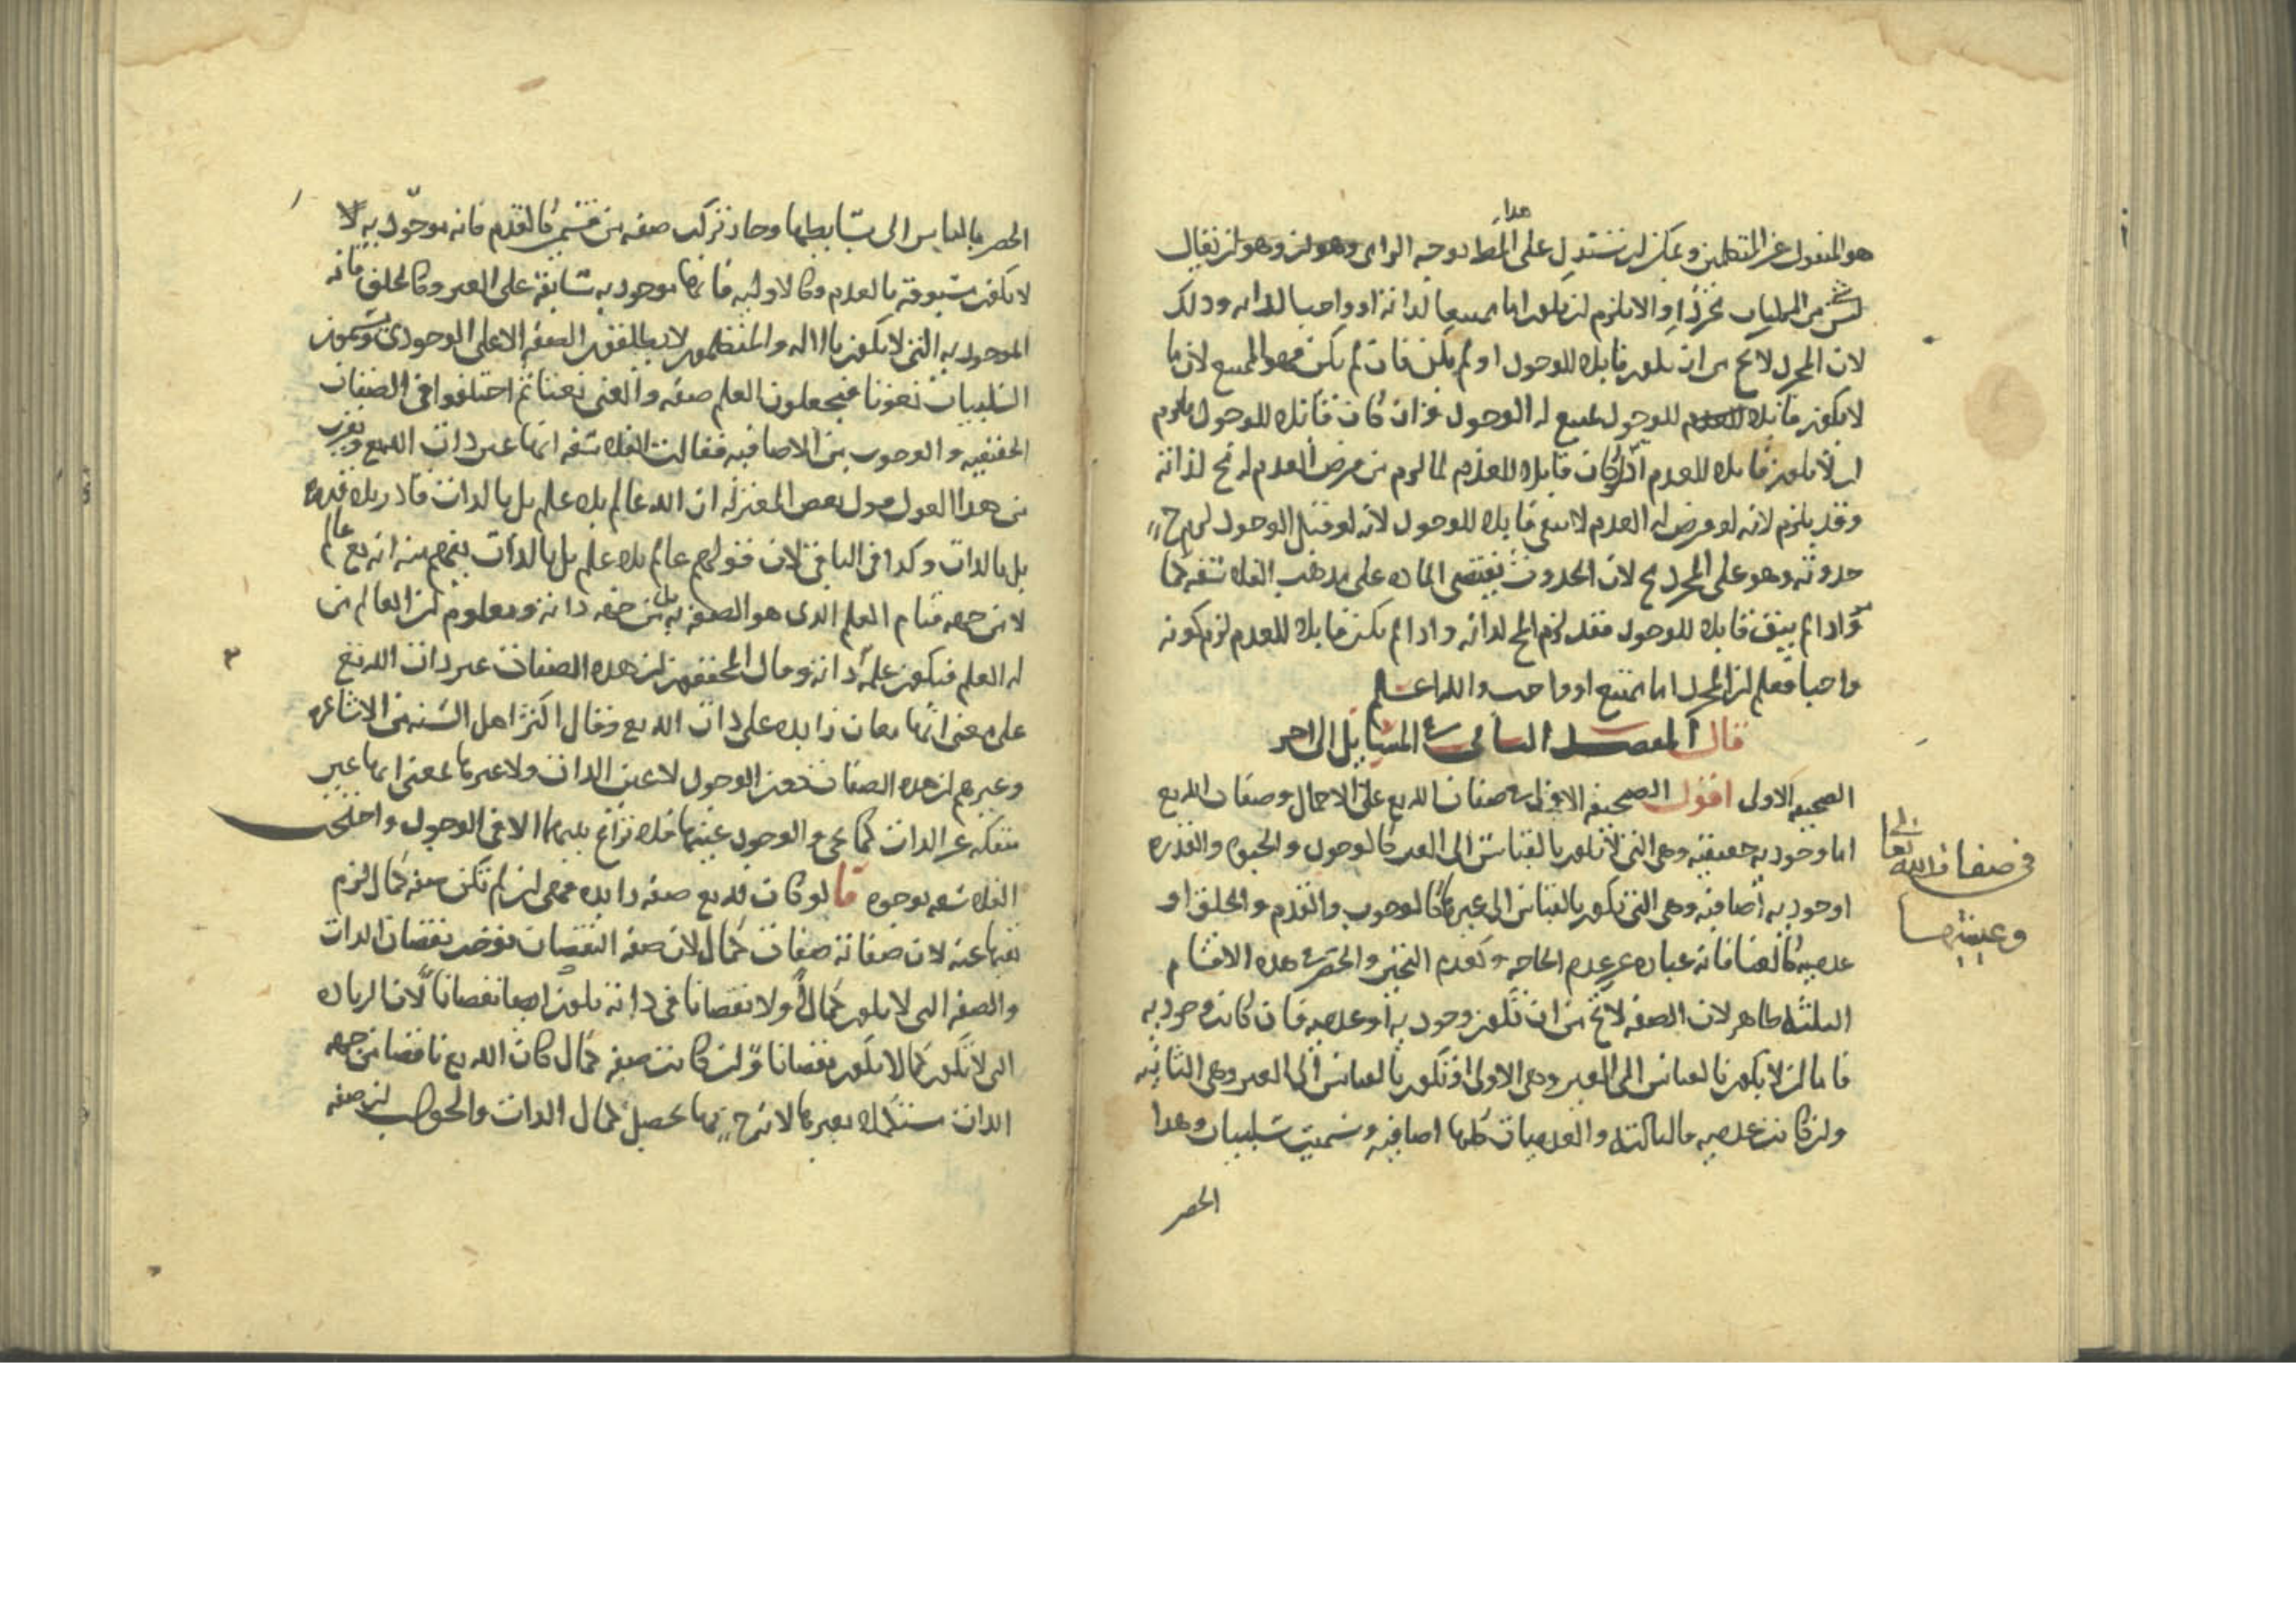 هذا
هو المنقول عن المتكلمين ويمكن ان نستدل على المط بوجه الزامى وهو ان يقال
شئ من الممكنات بمجرد والا يلزم ان يكون اما ممتنعا لذاته او واجبا لذاته وذلك
لان المجرد لا يخ من ان يكون قابلا للوجود او لم يكن فان لم يكن فهو الممتنع لان ما
لا يكون قابلا للوجول يمتنع له الوجول وان كان قابلا للوجول يلزم
ان لا يكون قابلا للعدم اذ لو كان قابلا للعدم لما لزم من فرض العدم له مح لذاته
وقد يلزم لانه لو فرض له العدم لا يبقى قابلا للوجول لانه لو قبل الوجول لزم ح
حدوثه وهو على المجرد مح لان الحدوث يقتضى المادة على مذهب الفلاسفة كما
مر واذا لم يبق قابلا للوجول فقد لزم المح لذاته واذا لم يكن قابلا للعدم لزم كونه
واجبا فعلم ان المجرد اما ممتنع او واجب والله اعلم
قال المقصد الثانى فى المسائل الى اخر
الصحيفة الاولى اقول الصحيفة الاولى فى صفات الله تع على الاجمال وصفات الله تع
اما وجودية حقيقية وهى التى لا تكون بالقياس الى الغير كالوجول والحيوة والقدرة
او جودية اضافية وهى التى تكون بالقياس الى غيرها كالوجوب والقدم والخلق او
عدمية كالغنا فانه عبارة عن عدم الحاجة وكعدم التحيز والحصر فى هذه الاقسام
الثلثة ظاهر لان الصفة لا يخ من ان تكون وجودية او عدمية فان كانت وجودية
فاما ان لا يكون بالقياس الى الغير وهى الاولى او تكون بالقياس الى الغير وهى الثانية
وان كانت عدمية فالثالثة والعدميات كلها اضافية وسميت سلبيات وهذا
الحصر
فى صفات الله تعالى
وعينيتها
الحصر بالقياس الى بسايطها وجاز تركب صفة من قسمين كالقدم فانه موجود به لا
لا يكون مسبوقة بالعدم وكالاولية فانها موجودية سابقة على الغير وكالخلق فانه
الموجودية التى لا يكون بالالة والمتكلمون لا يطلقون الصفة الا على الوجودى ويسمون
السلبيات نعوتا فيجعلون العلم صفة والغنى نعتا ثم اختلفوا فى الصفات
الحقيقية والوجوب من الاضافية فقالت الفلاسفة انها عين ذات الله تع ويقرب
من هذا القول قول بعض المعتزلة ان الله عالم بلا علم بل بالذات قادر بلا قدرة
بل بالذات وكذا فى الباقى لان قولهم عالم بلا علم بل بالذات يفهم منه انه تع عالم
لا من جهة قيام العلم الذى هو الصفة به بل من جهة ذاته ومعلوم ان العالم من
له العلم فيكون علمه ذاته وقال المحققون ان هذه الصفات غير ذات الله تع
على معنى انها معان زايدة على ذات الله تع وقال اكثر اهل السنة من الاشاعرة
وغيرهم ان هذه الصفات دون الوجول لا عين الذات ولا غيرها بمعنى انها غير
منفكة عن الذات كما يجئ والوجول عينها فلا نزاع بينهما الا فى الوجول واحتجت
الفلاسفة بوجوه قا لو كان لله تع صفة زايدة فهى ان لم تكن صفة كمال لزم
نفيها عنه لان صفاته صفات كمال لان صفة النقصان توجب نقصان الذات
والصفة التى لا يكون كمالا ولا نقصانا فى ذاته تكون ايضا نقصانا لان الزيادة
التى لا تكون كمالا يكون نقصانا وان كانت صفة كمال كان الله تع ناقصا من جهة
الذات مستكملا بغيرها لانه ح بها يحصل كمال الذات والجواب ان صفة